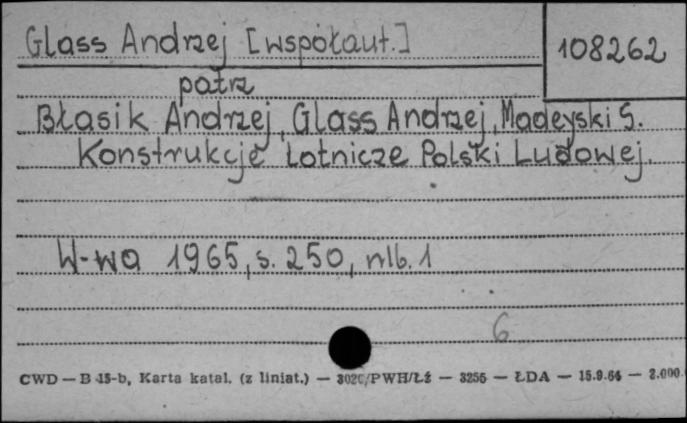 Glass Andrzej [współaut.]
108262
patrz
Błasik Andrzej, Glass Andrzej, Madeyski S.
Konstrukcje Lotnicze Polski Ludowej.
W-wa 1965, s. 250, nlb. 1
6
CWD — B 15-b, Karta katal. (z liniat.) — PWH/Łź — 3256 — ŁDA — 15.9.64 — 2.000